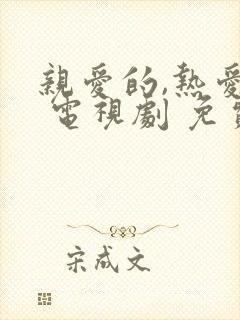 親愛的,熱愛
電視劇 免
宋成文